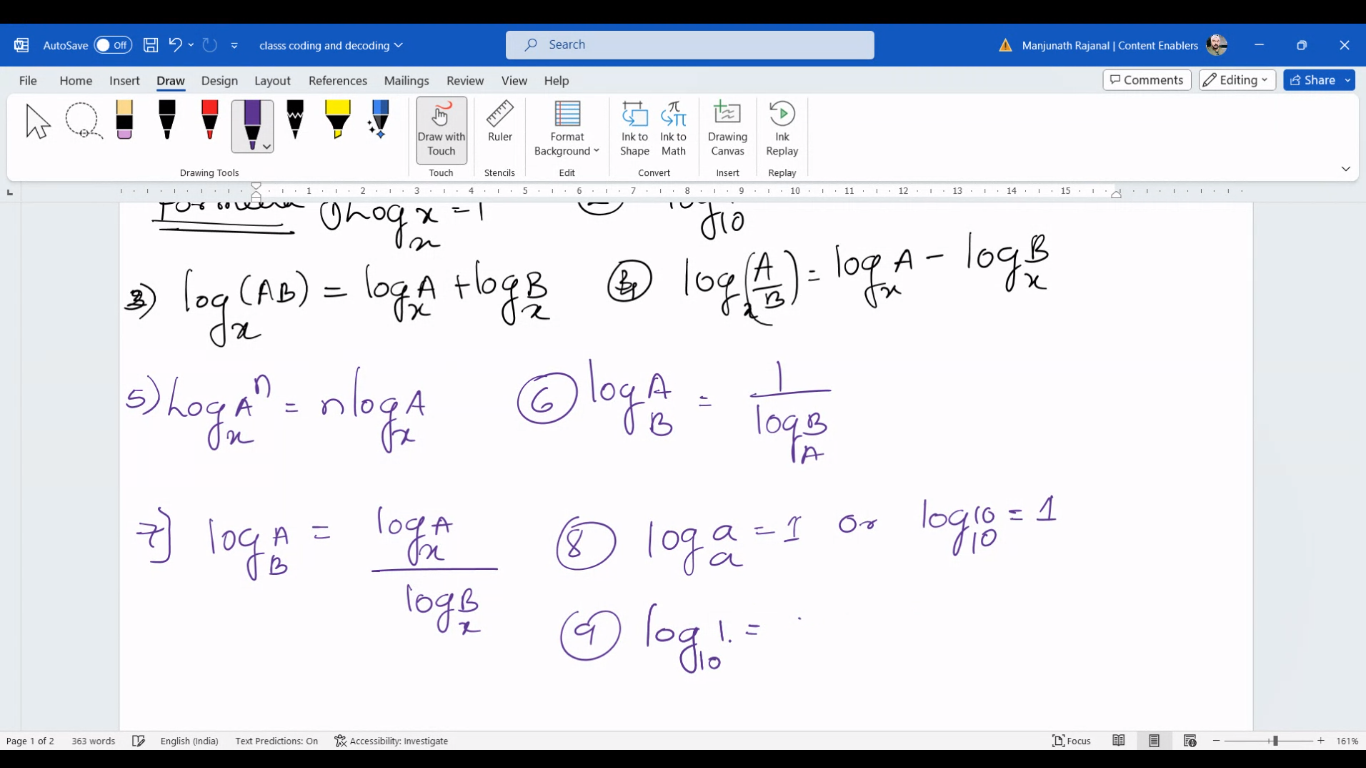 AutoSave Off classs coding and decoding Search Manjunath Rajanal | Content Enablers
File Home Insert Draw Design Layout References Mailings Review View Help Comments Editing Share
Draw with Touch Ruler Format Background Ink to Shape Ink to Math Drawing Canvas Ink Replay
Drawing Tools Touch Stencils Edit Convert Insert Replay
1 2 3 4 5 6 7 8 9 10 11 12 13 14 15
Formula 1) log_x x = 1 log_10
3) log_x (AB) = log_x A + log_x B 4 log_x (A/B) = log_x A - log_x B
5) Log_x A^n = n log_x A 6 log_B A = 1 / log_A B
7) log_B A = log_x A / log_x B 8 log_a a = 1 or log_10 10 = 1
9 log_10 1 =
Page 1 of 2 363 words English (India) Text Predictions: On Accessibility: Investigate Focus 161%